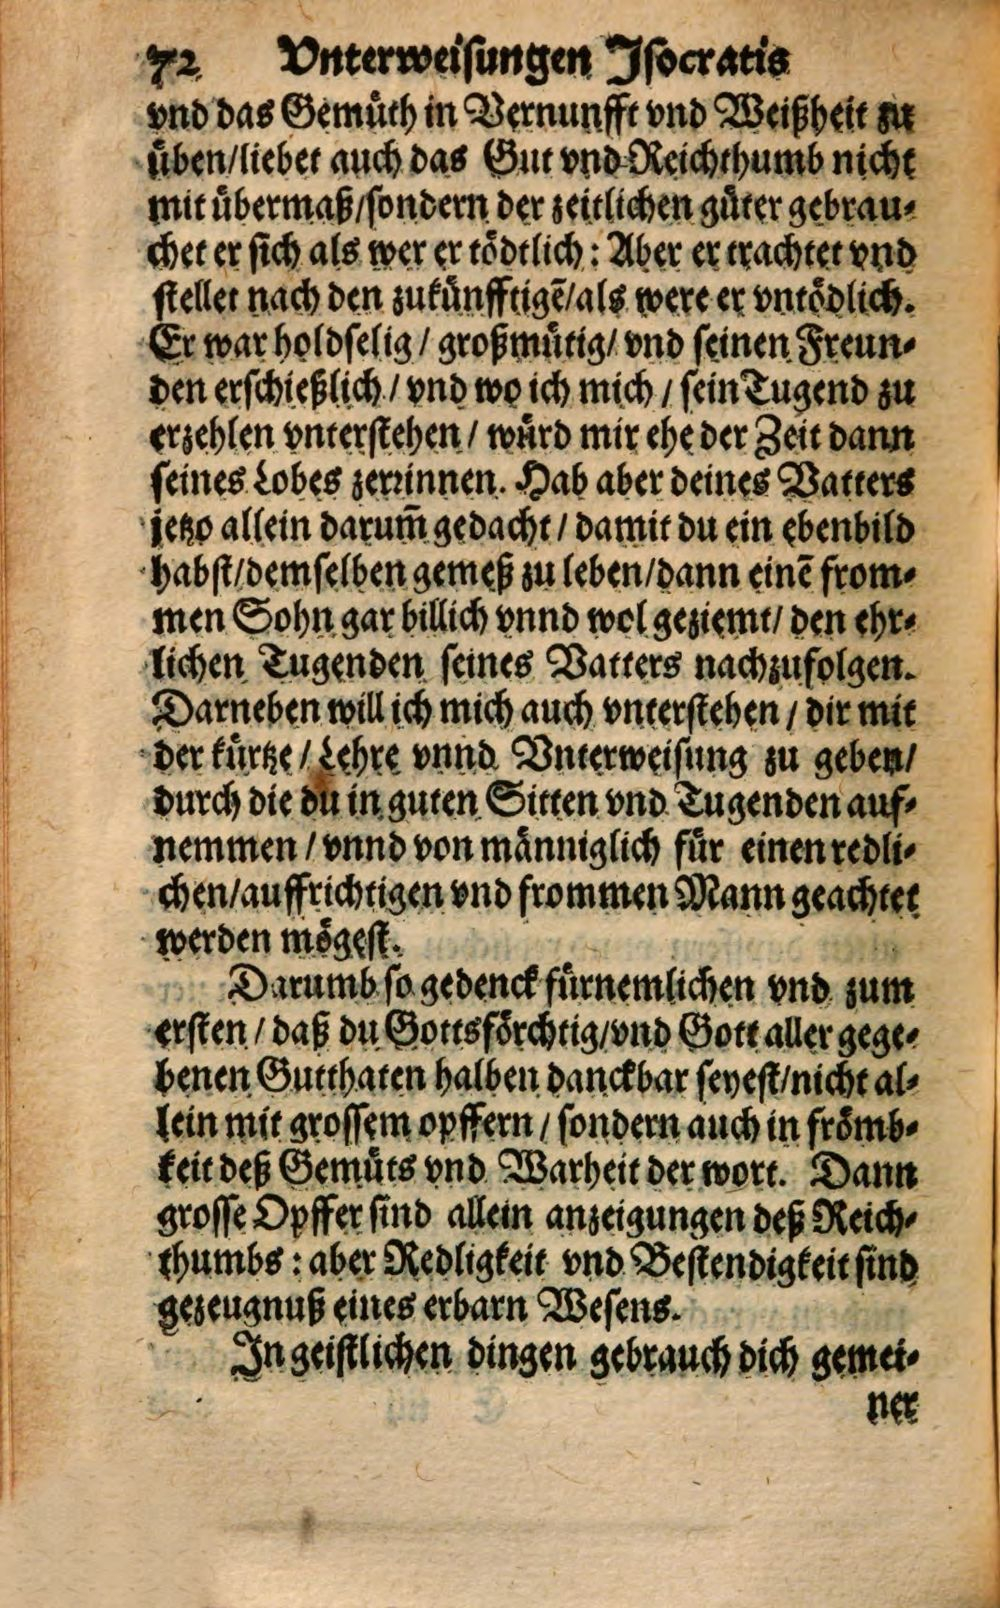 72 Vnterweisungen Isocratis
vnd das Gemüth in Vernunfft vnd Weißheit zu
üben/liebet auch das Gut vnd Reichthumb nicht
mit übermaß/sondern der zeitlichen güter gebrau-
chet er sich als wer er tödtlich: Aber er trachtet vnd
stellet nach den zukünfftigē/als were er vntödlich.
Er war holdselig / großmütig/ vnd seinen Freun-
den erschießlich / vnd wo ich mich / sein Tugend zu
erzehlen vnterstehen / würd mir ehe der Zeit dann
seines Lobes zerrinnen. Hab aber deines Vatters
jetzo allein darum̃ gedacht / damit du ein ebenbild
habst/demselben gemeß zu leben/dann einē from-
men Sohn gar billich vnnd wol geziemt/ den ehr-
lichen Tugenden seines Vatters nachzufolgen.
Darneben will ich mich auch vnterstehen / dir mit
der kürtze / Lehre vnnd Vnterweisung zu geben/
durch die du in guten Sitten vnd Tugenden auf-
nemmen / vnnd von männiglich für einen redli-
chen/auffrichtigen vnd frommen Mann geachtet
werden mögest.
Darumb so gedenck fürnemlichen vnd zum
ersten / daß du Gottsförchtig/vnd Gott aller gege-
benen Gutthaten halben danckbar seyest/nicht al-
lein mit grossem opffern / sondern auch in frömb-
keit deß Gemüts vnd Warheit der wort. Dann
grosse Opffer sind allein anzeigungen deß Reich-
thumbs: aber Redligkeit vnd Bestendigkeit sind
gezeugnuß eines erbarn Wesens.
In geistlichen dingen gebrauch dich gemei-
ner